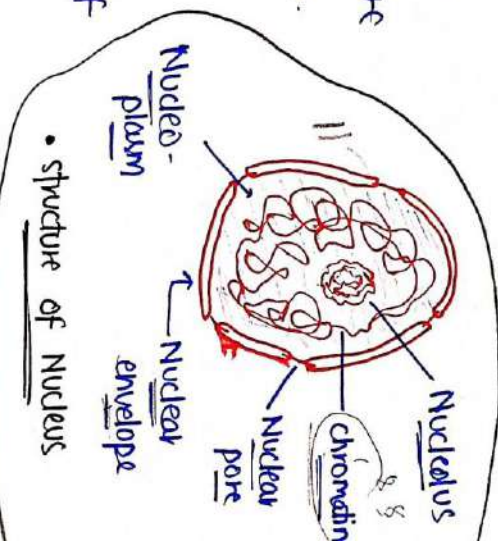 Nucleolus
chromatin
Nuclear
pore
Nuclear
envelope
Nucleo-
plasm
• structure of Nucleus